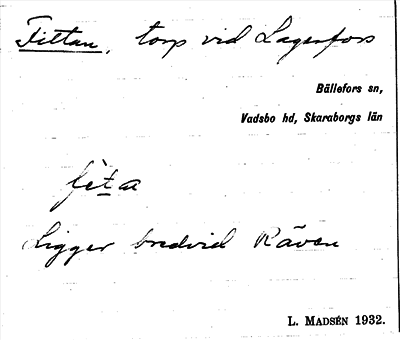 Filtan, torp vid Lagerfors
Bällefors sn,
Vadsbo hd, Skaraborgs län
Ligger bredvid Räven
L. MADSÉN 1932.